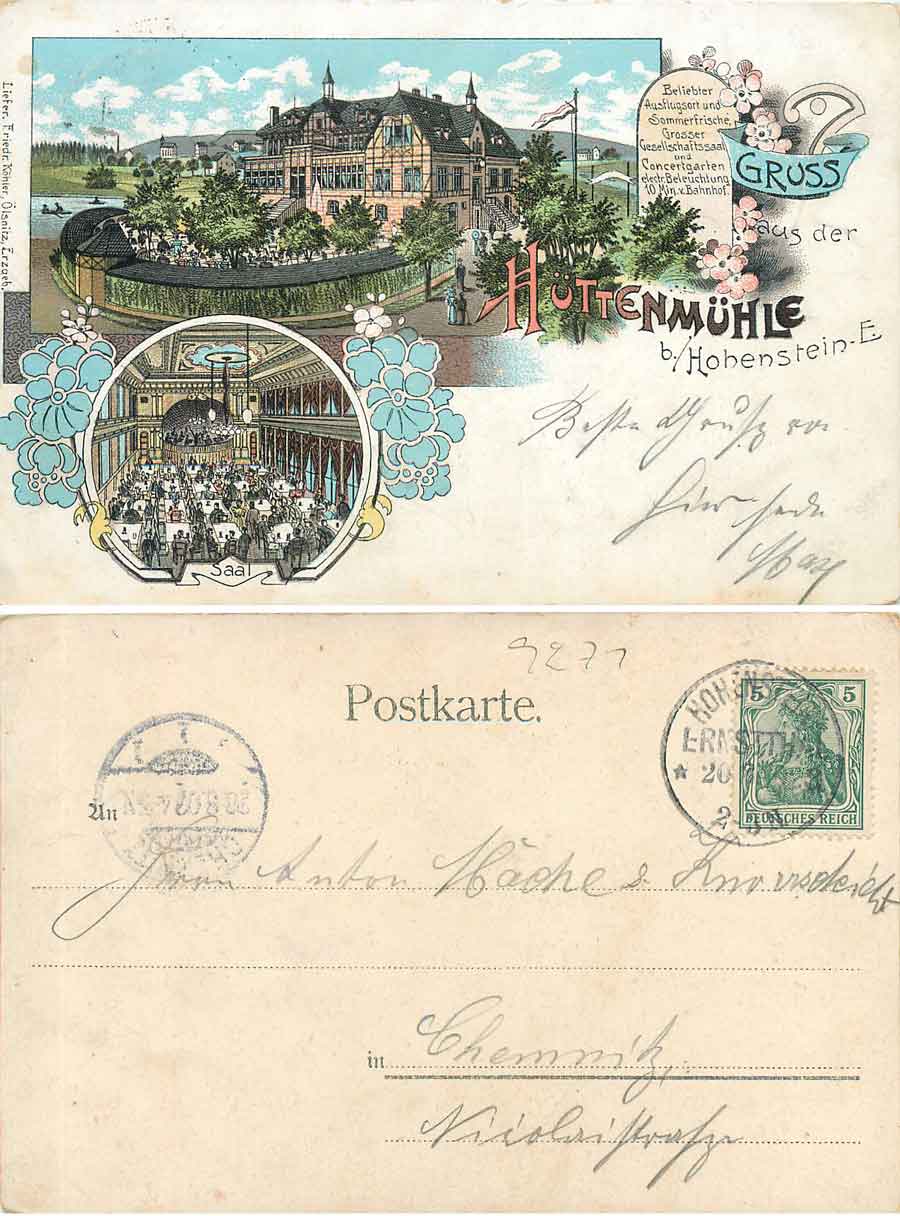 Liefer. Friedr. Köhler, Ölsnitz, Erzgeb.
Beliebter
Ausflugsort und
Sommerfrische,
Grosser
Gesellschaftssaal
und
Concertgarten
electr. Beleuchtung
10 Min. v. Bahnhof.
GRUSS
aus der
HÜTTENMÜHLE
b./Hohenstein-E
Beste Gruß von
hier sende
Max
Saal
9271
Postkarte.
HOHENST
ERNSTTH
20
5 5
DEUTSCHES REICH
An
Herrn Anton Mäche
in Chemnitz,
Nicolaistraße